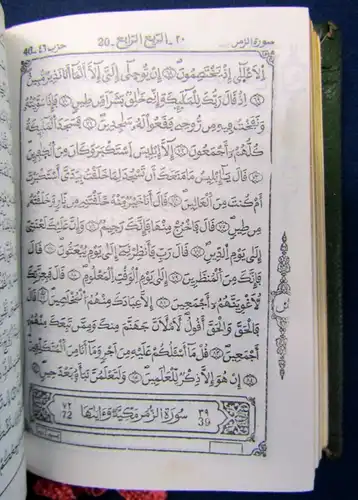 سورة الزمر ٢٠ الربع الرابع .20 حزب ٤٦ .46
الاعلى إذ يختصمون إن يوحى إلي إلا أنما أنا نذير مبين
إذ قال ربك للملئكة إني خلق بشرا من طين فإذا سويته
ونفخت فيه من روحي فقعوا له سجدين فسجد الملئكة
كلهم أجمعون إلا إبليس استكبر وكان من الكفرين
قال يإبليس ما منعك أن تسجد لما خلقت بيدي أستكبرت
أم كنت من العالين قال أنا خير منه خلقتني من نار وخلقته
من طين قال فاخرج منها فإنك رجيم وإن عليك لعنتي
إلى يوم الدين قال رب فأنظرني إلى يوم يبعثون قال
فإنك من المنظرين إلى يوم الوقت المعلوم قال فبعزتك
لأغوينهم أجمعين إلا عبادك منهم المخلصين قال
فالحق والحق أقول لأملأن جهنم منك وممن تبعك منهم
أجمعين قل ما أسئلكم عليه من أجر وما أنا من المتكلفين
إن هو إلا ذكر للعلمين ولتعلمن نبأه بعد حين
٣٩ 39 سورة الزمر مكية وءاياتها ٧٢ 72